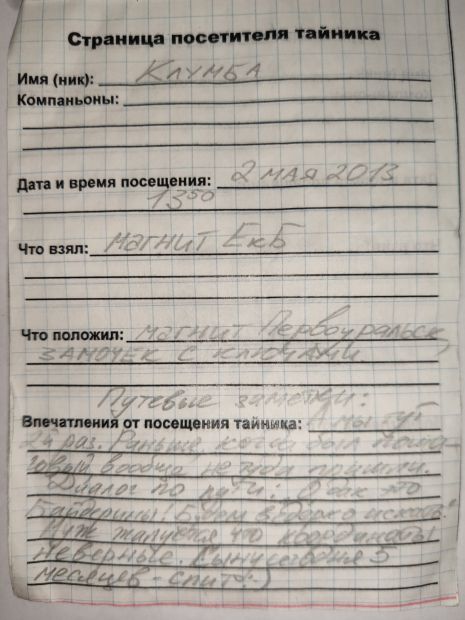 Страница посетителя тайника
Имя (ник): Клумба
Компаньоны:
Дата и время посещения: 2 мая 2013
13 50
Что взял: магнит ЕкБ
Что положил: магнит Первоуральск,
замочек с ключами
Путевые заметки:
Впечатления от посещения тайника: А мы тут
2й раз. Раньше, когда был
вообще не туда пришли.
Диалог по пути: "О как это
! Будем ведерко искать."
Муж жалуется что координаты
неверные. Сыну сегодня 5
месяцев - спит :-)